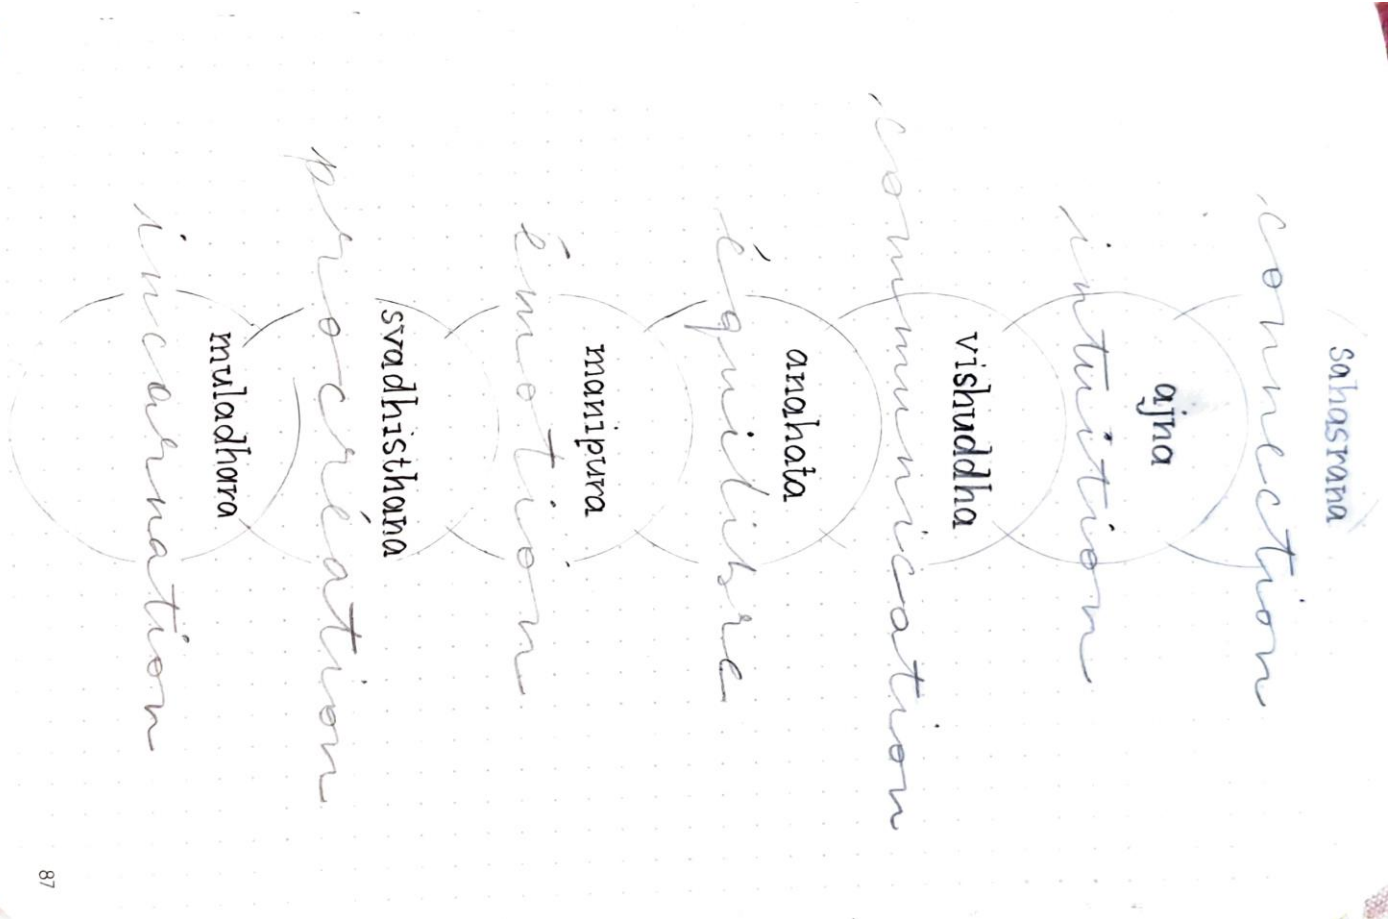 sahasrana
connection
ajna
intuition
vishuddha
communication
anahata
équilibre
manipura
émotion
svadhisthana
procréation
muladhara
incarnation
87